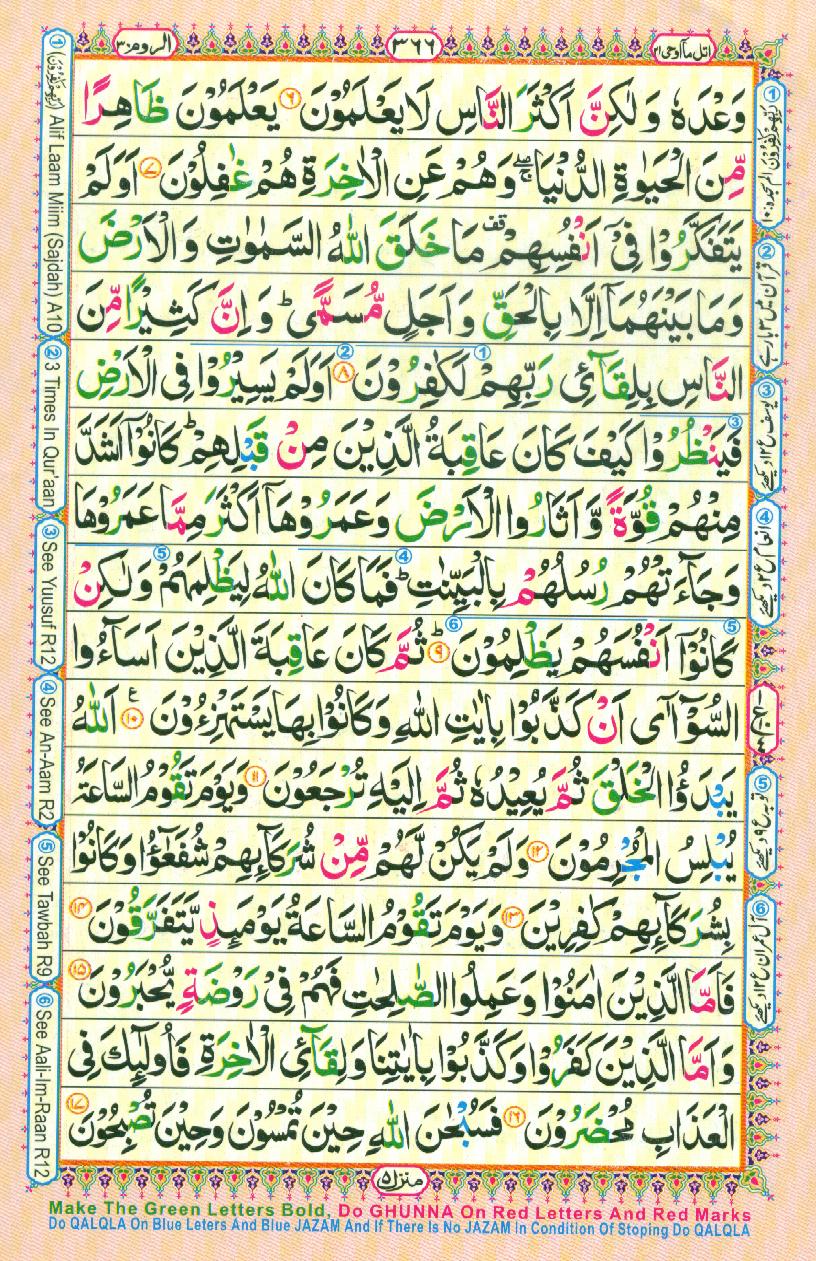 اتل ماۤ اوحی ۲۱
۳۶۶
الروم ۳۰
وَعْدَهٗ وَلٰكِنَّ اَكْثَرَ النَّاسِ لَا يَعْلَمُوْنَ ۶ يَعْلَمُوْنَ ظَاهِرًا
مِّنَ الْحَيٰوةِ الدُّنْيَا ۖۚ وَهُمْ عَنِ الْاٰخِرَةِ هُمْ غٰفِلُوْنَ ۷ اَوَلَمْ
يَتَفَكَّرُوْا فِيْٓ اَنْفُسِهِمْ قف مَا خَلَقَ اللّٰهُ السَّمٰوٰتِ وَالْاَرْضَ
وَمَا بَيْنَهُمَآ اِلَّا بِالْحَقِّ وَاَجَلٍ مُّسَمًّى ؕ وَاِنَّ كَثِيْرًا مِّنَ
النَّاسِ بِلِقَآئِ رَبِّهِمْ لَكٰفِرُوْنَ ۸ اَوَلَمْ يَسِيْرُوْا فِي الْاَرْضِ
فَيَنْظُرُوْا كَيْفَ كَانَ عَاقِبَةُ الَّذِيْنَ مِنْ قَبْلِهِمْ ؕ كَانُوْٓا اَشَدَّ
مِنْهُمْ قُوَّةً وَّاَثَارُوا الْاَرْضَ وَعَمَرُوْهَآ اَكْثَرَ مِمَّا عَمَرُوْهَا
وَجَآءَتْهُمْ رُسُلُهُمْ بِالْبَيِّنٰتِ ؕ فَمَا كَانَ اللّٰهُ لِيَظْلِمَهُمْ وَلٰكِنْ
كَانُوْٓا اَنْفُسَهُمْ يَظْلِمُوْنَ ؕ ۹ ثُمَّ كَانَ عَاقِبَةَ الَّذِيْنَ اَسَآءُوا
السُّوْٓآٰى اَنْ كَذَّبُوْا بِاٰيٰتِ اللّٰهِ وَكَانُوْا بِهَا يَسْتَهْزِءُوْنَ ۱۰ ع اَللّٰهُ
يَبْدَؤُا الْخَلْقَ ثُمَّ يُعِيْدُهٗ ثُمَّ اِلَيْهِ تُرْجَعُوْنَ ۱۱ وَيَوْمَ تَقُوْمُ السَّاعَةُ
يُبْلِسُ الْمُجْرِمُوْنَ ۱۲ وَلَمْ يَكُنْ لَّهُمْ مِّنْ شُرَكَآئِهِمْ شُفَعٰٓؤُا وَكَانُوْا
بِشُرَكَآئِهِمْ كٰفِرِيْنَ ۱۳ وَيَوْمَ تَقُوْمُ السَّاعَةُ يَوْمَئِذٍ يَّتَفَرَّقُوْنَ ۱۴
فَاَمَّا الَّذِيْنَ اٰمَنُوْا وَعَمِلُوا الصّٰلِحٰتِ فَهُمْ فِيْ رَوْضَةٍ يُّحْبَرُوْنَ ۱۵
وَاَمَّا الَّذِيْنَ كَفَرُوْا وَكَذَّبُوْا بِاٰيٰتِنَا وَلِقَآئِ الْاٰخِرَةِ فَاُولٰٓئِكَ فِي
الْعَذَابِ مُحْضَرُوْنَ ۱۶ فَسُبْحٰنَ اللّٰهِ حِيْنَ تُمْسُوْنَ وَحِيْنَ تُصْبِحُوْنَ ۱۷
② قرآن میں ۳ بار ہے
③ یوسف ع ۱۲ دیکھئے
④ انعام ع ۲ دیکھئے
⑤ توبہ ع ۹ دیکھئے
⑥ آل عمران ع ۱۲ دیکھئے
① Alif Laam Miim (Sajdah) A10
② 3 Times In Qur'aan
③ See Yuusuf R12
④ See An-Aam R2
⑤ See Tawbah R9
⑥ See Aali-Im-Raan R12
منزل ۵
Make The Green Letters Bold, Do GHUNNA On Red Letters And Red Marks
Do QALQLA On Blue Leters And Blue JAZAM And If There Is No JAZAM In Condition Of Stoping Do QALQLA